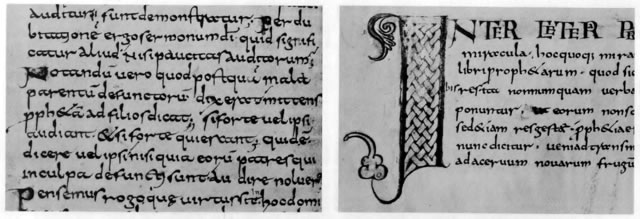 auditur; sunt demonstratur; Per du
bitatione ergo sermonum di quid signifi
catur aliud. Nisi paucitas auditorum;
Notandu vero quod postqua mala
parentu defunctoru dixerat mittens
ppheta ad filios dicat; si forte vel ipsi
audiant. & si forte quiescant, quid e
dicere vel ipsi nisi quia eoru patres qui
in culpa defuncti sunt audire noluer
Pensemus rogo que virtus in hoc domi
INTER CETER
miracula. hoc quoq; mira
libri prophetarum. quod si
res ita nonnumquam verba
ponuntur. eorum nonse
sed &iam res gestae. pph&iae
nunc dicitur. veniad transm
ad acervum novarum frugu